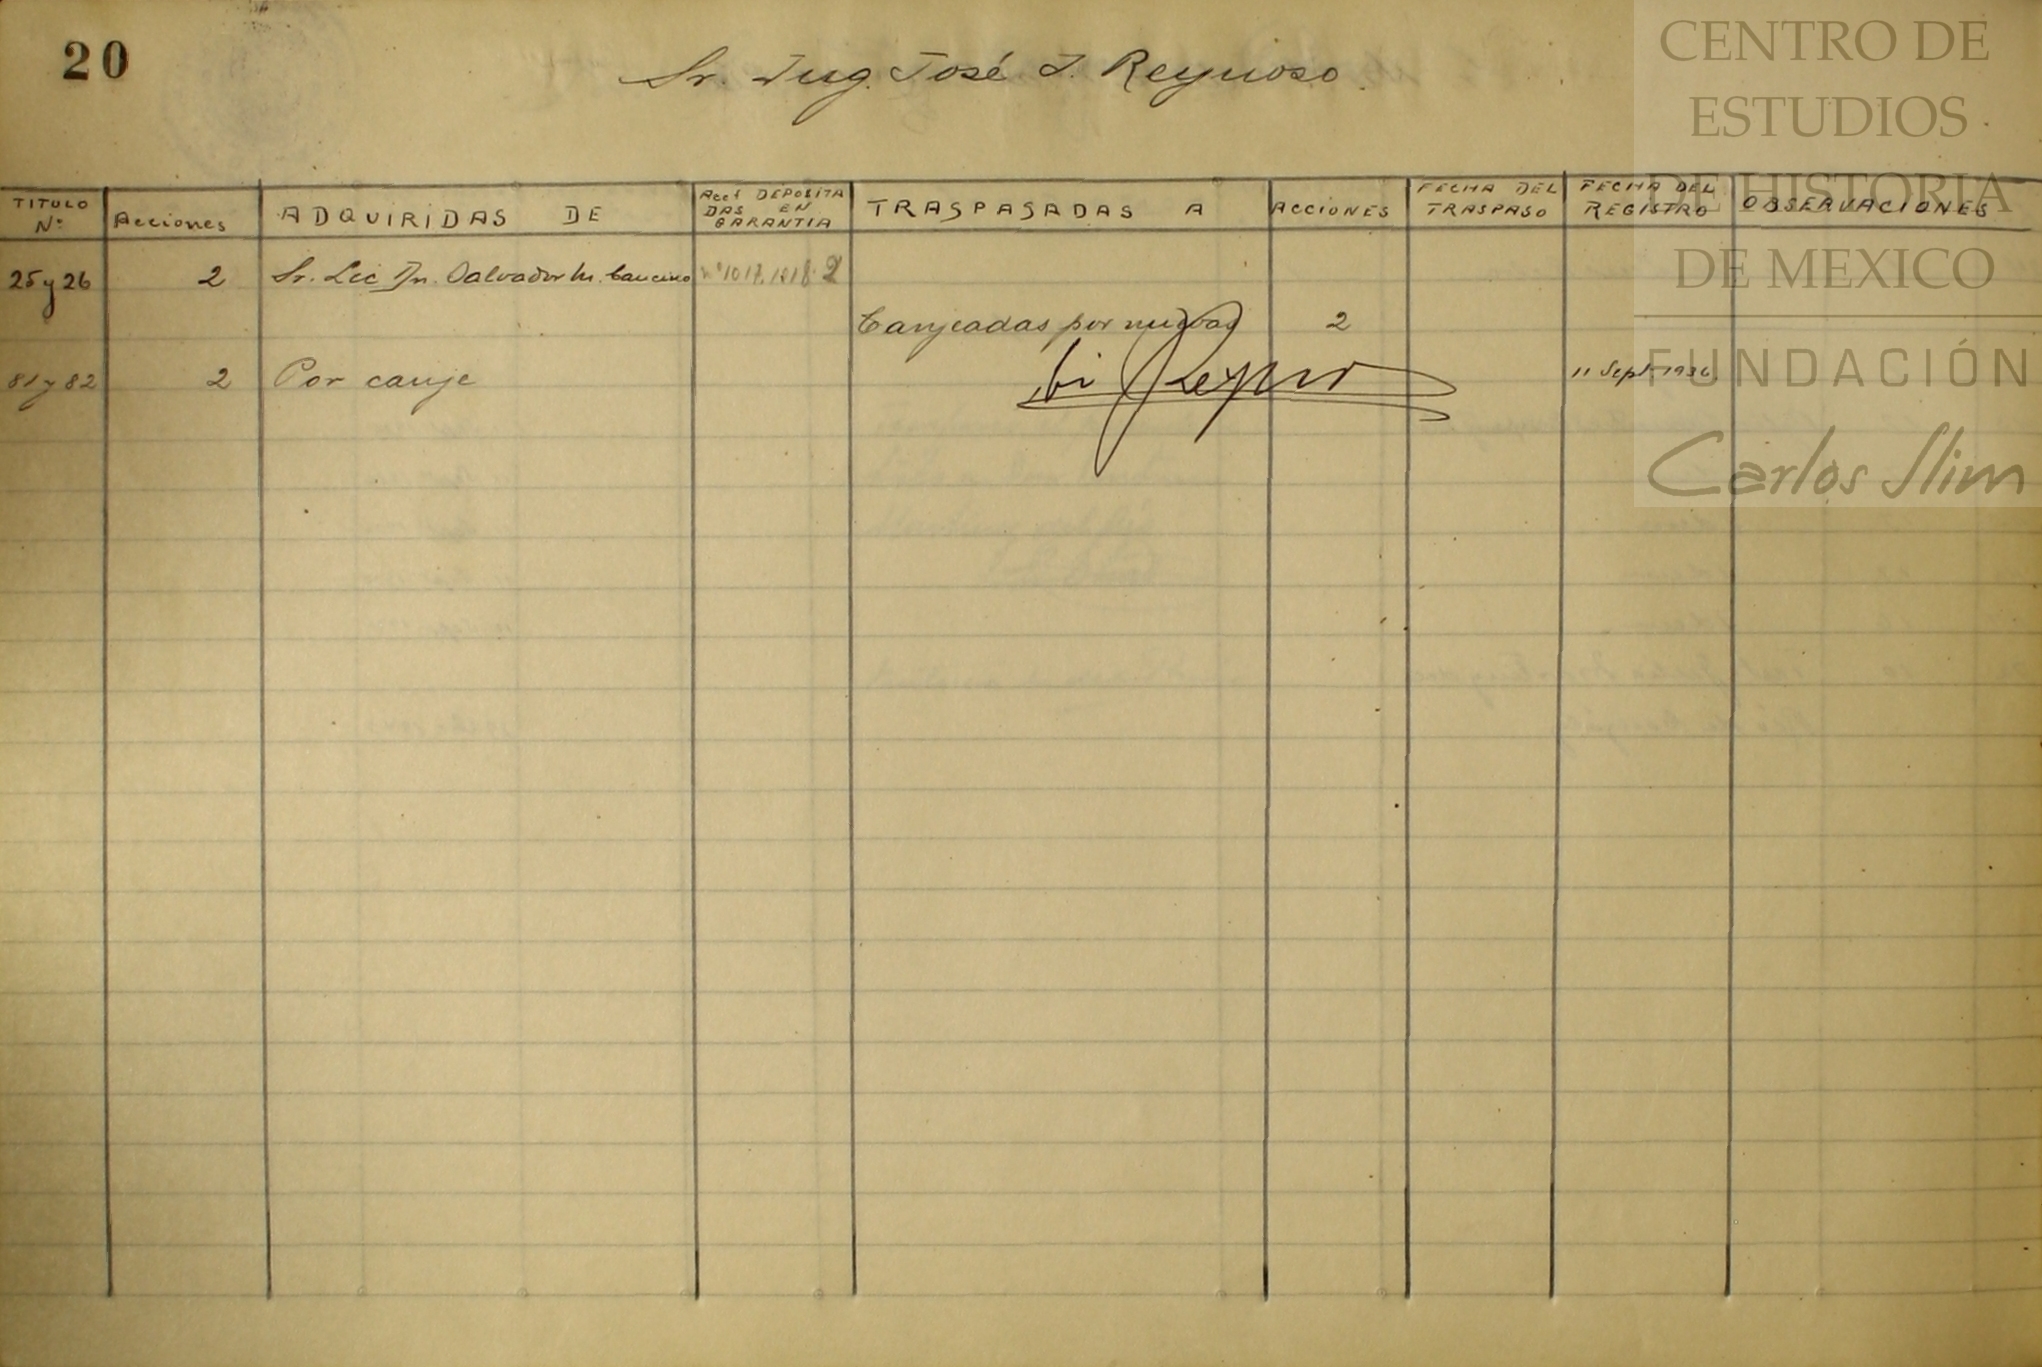 20
Sr. Ing. José J. Reynoso.
TITULO Nº
Acciones
ADQUIRIDAS DE
Accs DEPOSITA
DAS EN
GARANTIA
TRASPASADAS A
ACCIONES
FECHA DEL
TRASPASO
FECHA DEL
REGISTRO
OBSERVACIONES
25 y 26 2 Sr. Lic Dn. Salvador M. Cancino 2
Canjeadas por nuevas 2
81 y 82 2 Por canje 11 Sept. 1936
CENTRO DE
ESTUDIOS
DE HISTORIA
DE MEXICO
FUNDACIÓN
Carlos Slim